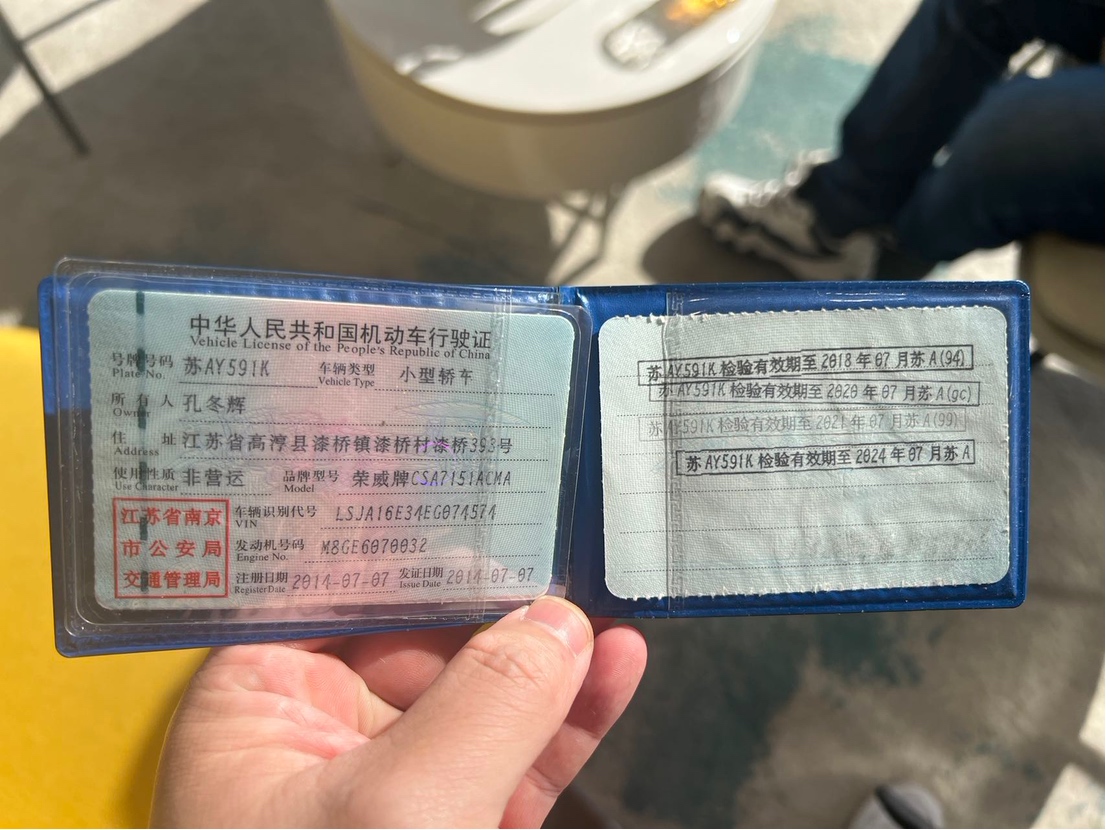 中华人民共和国机动车行驶证
Vehicle License of the People's Republic of China
号牌号码 苏AY591K 车辆类型 小型轿车
Plate No. Vehicle Type
所有人 孔冬辉
Owner
住址 江苏省高淳县漆桥镇漆桥村漆桥393号
Address
使用性质 非营运 品牌型号 荣威牌CSA7151ACMA
Use Character Model
江苏省南京
市公安局
交通管理局
车辆识别代号 LSJA16E34EG074574
VIN
发动机号码 M8GE6070032
Engine No.
注册日期 2014-07-07 发证日期 2014-07-07
Register Date Issue Date
苏AY591K检验有效期至2018年07月苏A(94)
苏AY591K检验有效期至2020年07月苏A(gc)
苏AY591K检验有效期至2021年07月苏A(99)
苏AY591K检验有效期至2024年07月苏A